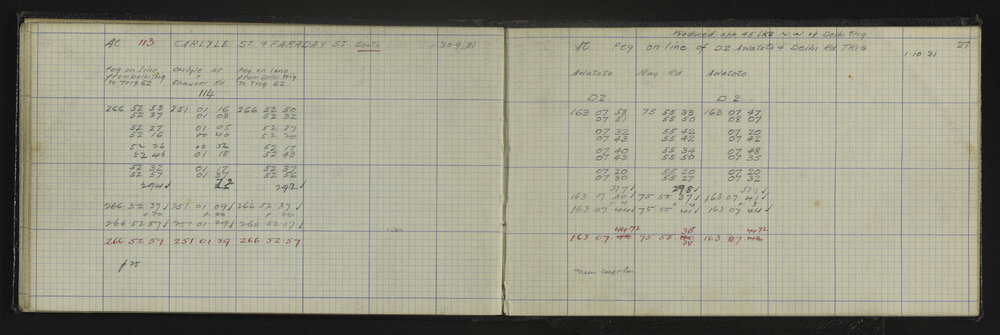 At 113 CARLYLE ST & FARADAY ST South 30.9.31
Peg on line Carlyle St Peg on line
from Delhi Trig & from Delhi Trig
to Trig 62 Chaucer Rd to Trig 62
114
266 52 53 251 01 16 266 52 50
52 37 01 03 52 32
52 27 01 05 52 27
52 16 00 40 52 20
52 26 00 56 52 17
52 46 01 18 52 43
52 32 01 17 52 37
52 57 01 37 52 56
294 72 292
266 52 37 251 01 09 266 52 37
+20 +20 +20
266 52 57 251 01 29 266 52 57
266 52 57 251 01 29 266 52 57
Produced app 45 LKS N.W of Delhi Trig
At Peg on line of D2 Awatoto & Delhi Rd TRIG 1.10.31 27
Awatoto Nay Rd Awatoto
D2 D2
163 07 58 75 55 33 163 07 47
07 51 55 50 08 07
07 32 55 42 07 20
07 43 55 42 07 42
07 40 55 34 07 48
07 43 55 50 07 35
07 20 55 20 07 20
07 30 55 27 07 32
317 298 331
163 07 40 75 55 37 163 07 41
163 07 44 75 55 41 163 07 44
44.72 38 44.72
163 07 75 55 163 07
38
mean